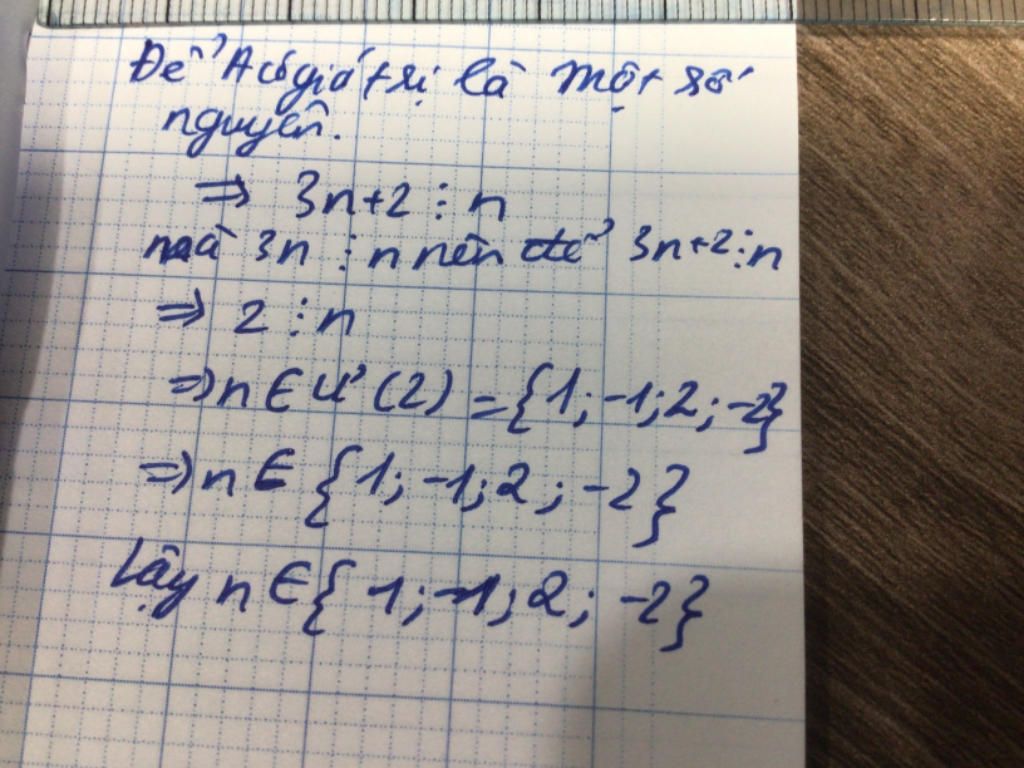 Để A có giá trị là một số
nguyên.
=> 3n+2 ⋮ n
mà 3n ⋮ n nên để 3n+2 ⋮ n
=> 2 ⋮ n
=> n ∈ Ư(2) = {1; -1; 2; -2}
=> n ∈ {1; -1; 2; -2}
Vậy n ∈ {1; -1; 2; -2}